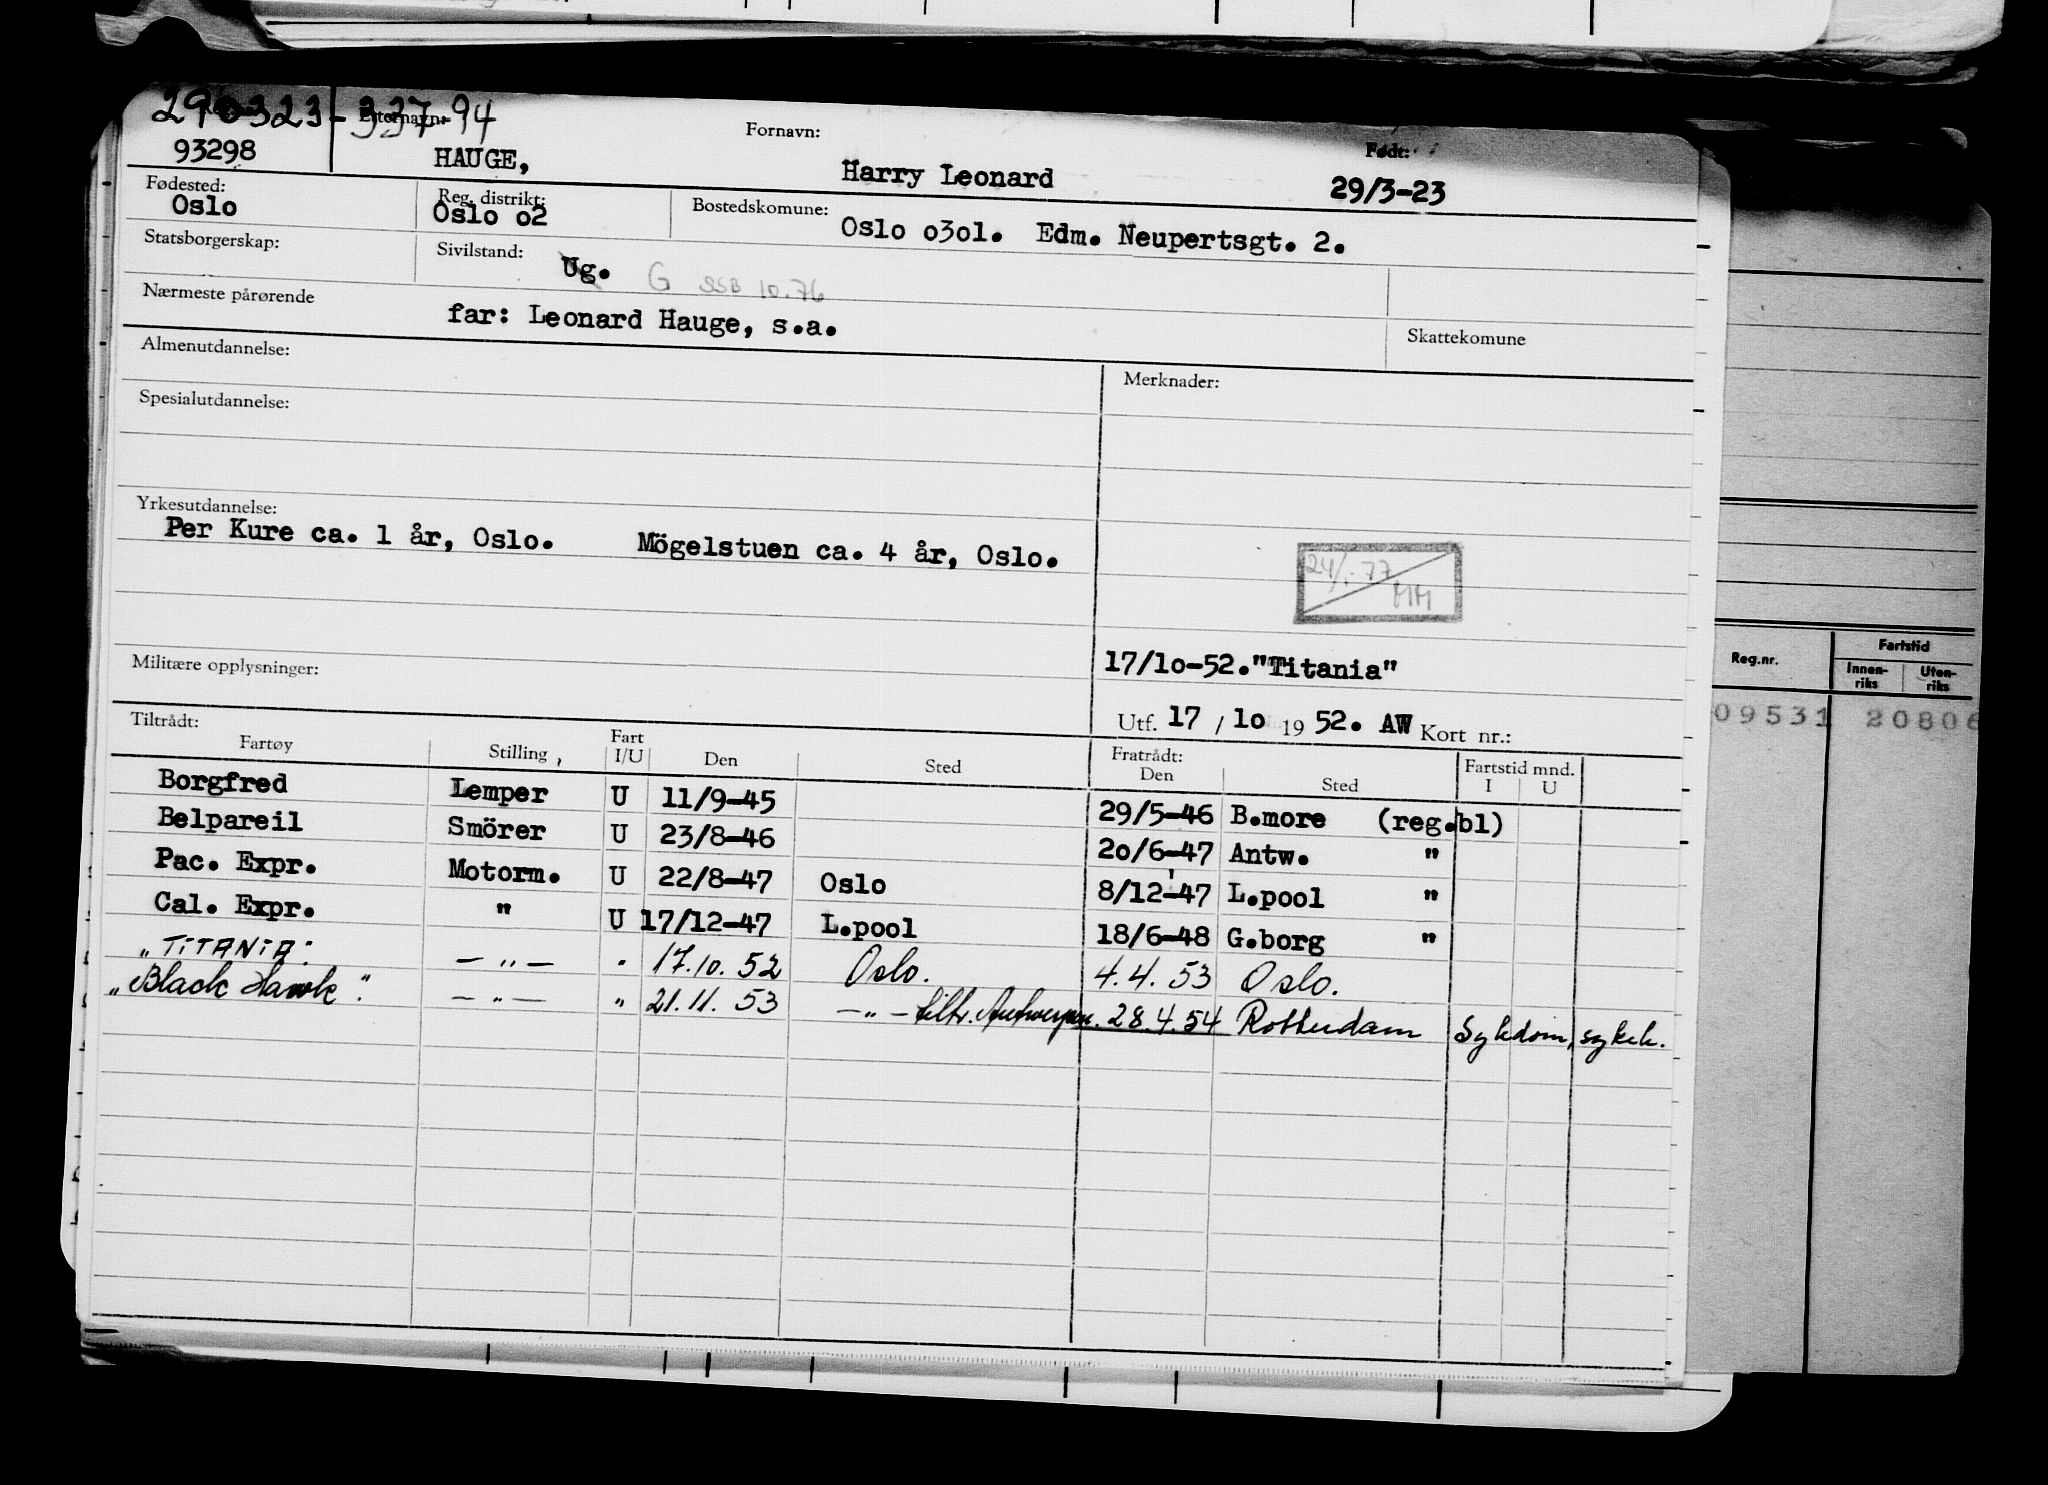 290323-337-94
Etternavn: Fornavn: Født:
93298 HAUGE, Harry Leonard 29/3-23
Fødested: Reg. distrikt: Bostedskomune:
Oslo Oslo o2 Oslo o3ol. Edm. Neupertsgt. 2.
Statsborgerskap: Sivilstand: Ug. G SSB 10.76
Nærmeste pårørende far: Leonard Hauge, s.a. Skattekomune
Almenutdannelse: Merknader:
Spesialutdannelse:
Yrkesutdannelse:
Per Kure ca. 1 år, Oslo. Mögelstuen ca. 4 år, Oslo.
24/1.77
HH
Militære opplysninger: 17/lo-52."Titania"
Utf. 17 / lo 19 52. AW Kort nr.:
Tiltrådt: Fratrådt: Fartstid mnd.
Fartøy Stilling, Fart I/U Den Sted Den Sted I U
Borgfred Lemper U 11/9-45 29/5-46 B.more (reg.bl)
Belpareil Smörer U 23/8-46 2o/6-47 Antw. "
Pac. Expr. Motorm. U 22/8-47 Oslo 8/12-47 L.pool "
Cal. Expr. " U 17/12-47 L.pool 18/6-48 G.borg "
"TITANIA: — " — " 17.10. 52 Oslo. 4.4. 53 Oslo.
"Black Hawk". — " — " 21.11. 53 — " — tiltr. Antwerpen. 28.4.54 Rotterdam Sykdom, sykeh.
Reg.nr. Fartstid
Innen-riks Uten-riks
09531 20806